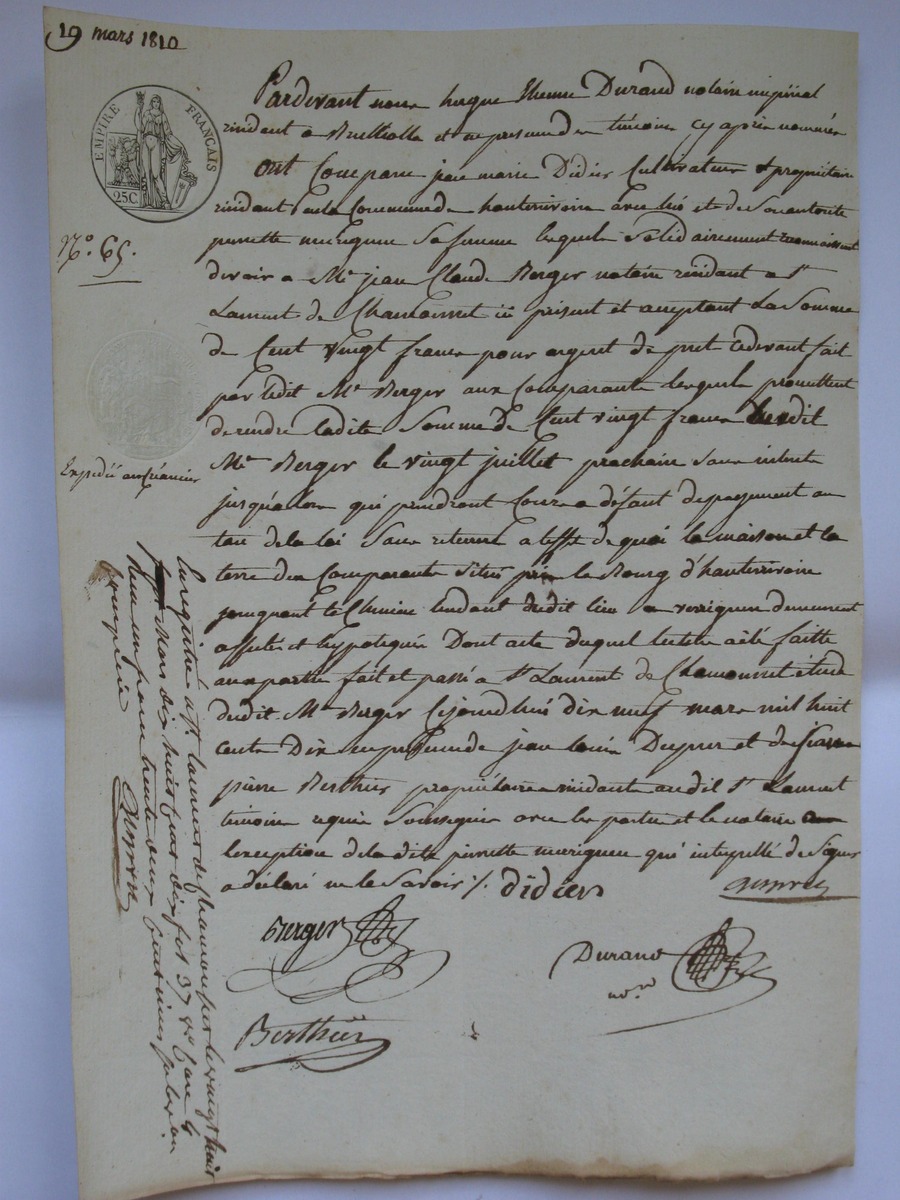 19 mars 1810
EMPIRE FRANÇAIS
25C
Pardevant nous hugue Durand notaire impérial
résident a et en presence des témoins cy après nommés
Ont Comparu jean marie Didier Cultivateur & propriétaire
résidant dans la Commune de hauterivoire avec lui et de Son autorité
pierrette Sa femme lesquels Solidairement reconnaissent
N.º 65.
devoir a Me jean Claude Berger notaire résidant a St
Laurent de Chamousset ici présent et acceptant La Somme
de Cent vingt francs pour argent de pret cidevant fait
par ledit Me Berger aux Comparants lesquels promettent
de rendre ladite Somme de Cent vingt francs audit
Me Berger le vingt juillet prochain Sans intérêts
Expédié au Créancier
jusqu'alors qui prendront Cours a défaut de payement au
taux de la loi Sans retenue a l'effet de quoi la maison et la
terre des Comparants Situés près le Bourg d'hauterivoire
joignant le Chemin tendant dudit lieu a demeurent
affectés et hypotequés Dont acte duquel lecture a été faitte
aux parties fait et passé a St Laurent de Chamousset étude
dudit Me Berger Cejourdhui dix neuf mars mil huit
cent Dix en presence de jean Dupré et de
pierre Berthier propriétaires résidants audit St Laurent
témoins requis Soussignés avec les parties et le notaire a
l'exception de la dite pierrette qui interpellé de Signer
a déclaré ne le Savoir ./.
didier
Berger
Durand
nore
Berthier
Enregistré a St laurent de Chamousset le vingt huit
Mars dix huit cent dix fol 37 vo Case 6
Reçu un franc trente deux Centimes subvention
comprise